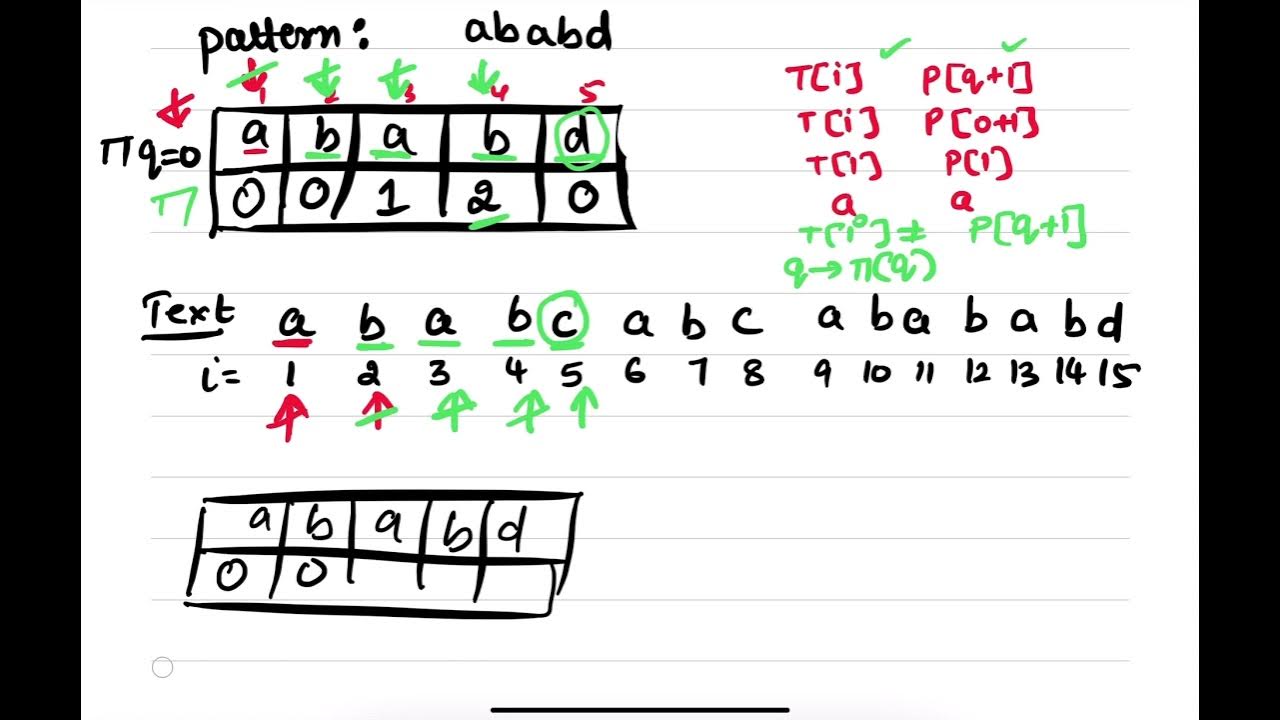 pattern: ababd
1 2 3 4 5
T[i] P[q+1]
Πq=0 a b a b d
T[i] P[0+1]
T[i] P[1]
Π 0 0 1 2 0
a a
T[i] ≠ P[q+1]
q→Π(q)
Text a b a b c a b c a b a b a b d
i= 1 2 3 4 5 6 7 8 9 10 11 12 13 14 15
a b a b d
0 0